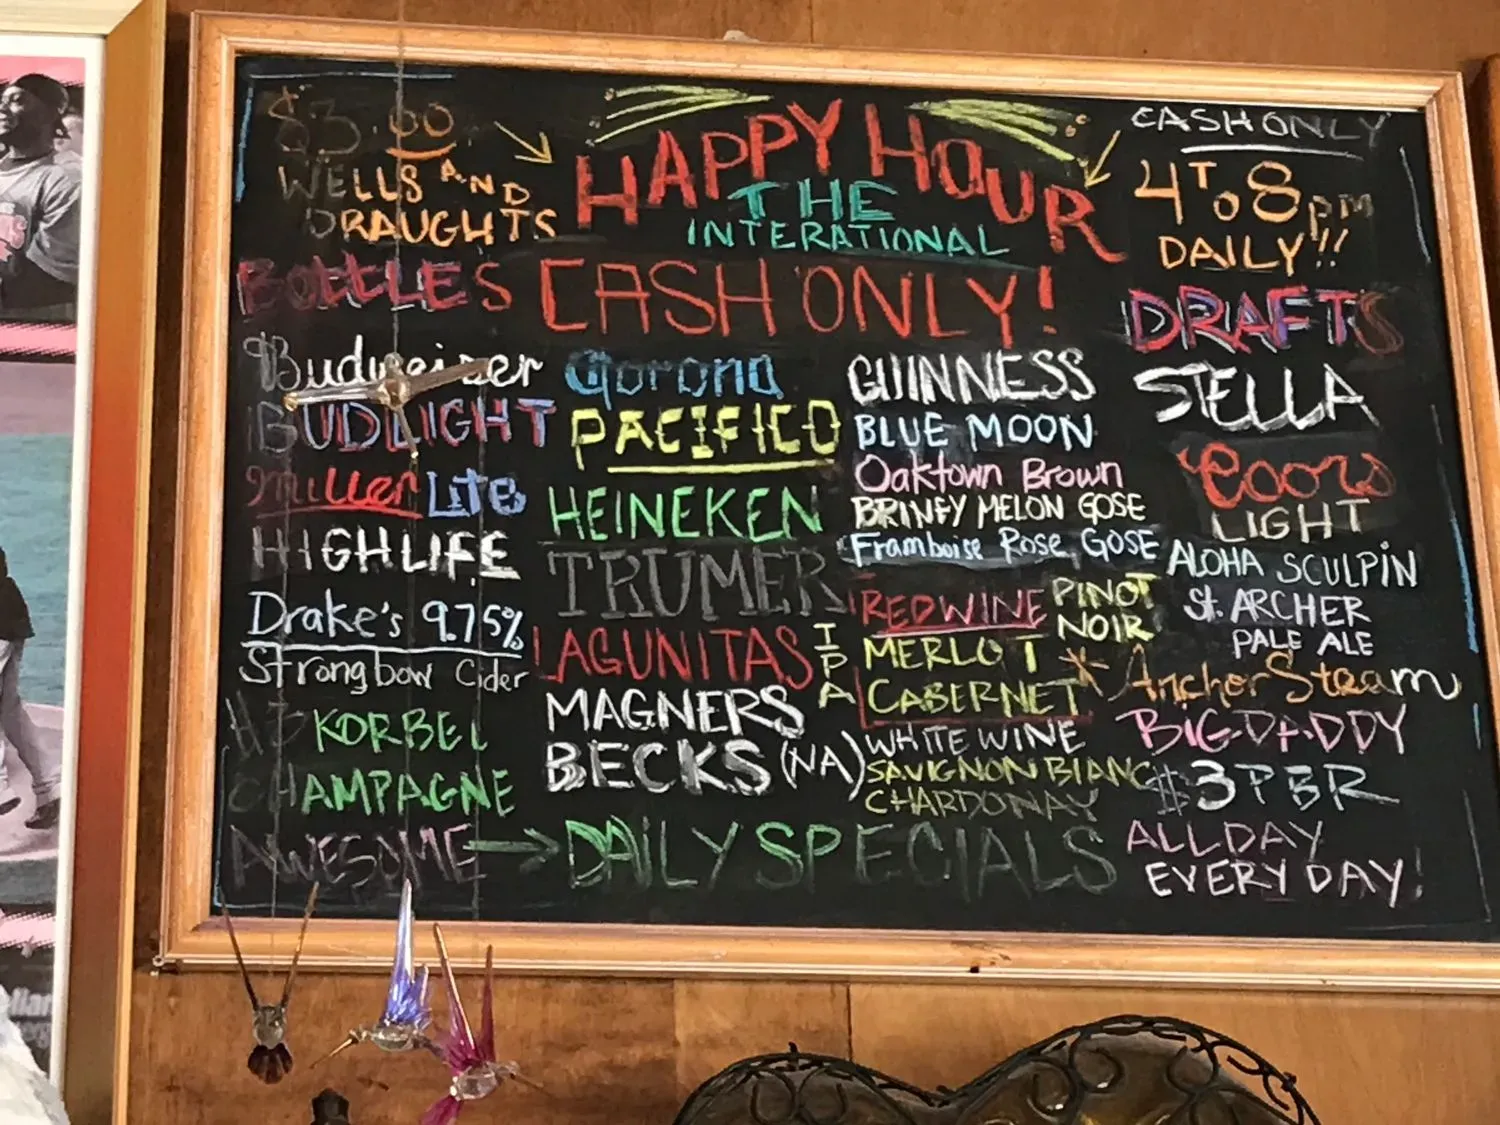 $3.00
WELLS AND
DRAUGHTS
HAPPY HOUR
THE
INTERATIONAL
CASH ONLY
4 TO 8 pm
DAILY!!
BOTTLES
CASH ONLY!
Budweiser
BUDLIGHT
Miller LITE
HIGHLIFE
Drake's 9.75%
Strongbow Cider
KORBEL
CHAMPAGNE
Corona
PACIFICO
HEINEKEN
TRUMER
LAGUNITAS IPA
MAGNERS
BECKS (NA)
GUINNESS
BLUE MOON
Oaktown Brown
BRINEY MELON GOSE
Framboise Rose GOSE
RED WINE PINOT
NOIR
MERLOT
CABERNET
WHITE WINE
SAUVIGNON BLANC
CHARDONAY
DRAFTS
STELLA
Coors
LIGHT
ALOHA SCULPIN
St. ARCHER
PALE ALE
Anchor Steam
BIG DADDY
$3 PBR
ALL DAY
EVERY DAY!
AWESOME → DAILY SPECIALS